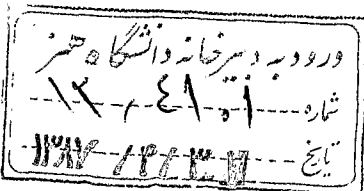 ورود به دبیرخانه دانشگاه هنر
شماره ۱۲/۴۱۰۱
تاریخ ۱۳۸۷/۴/۳